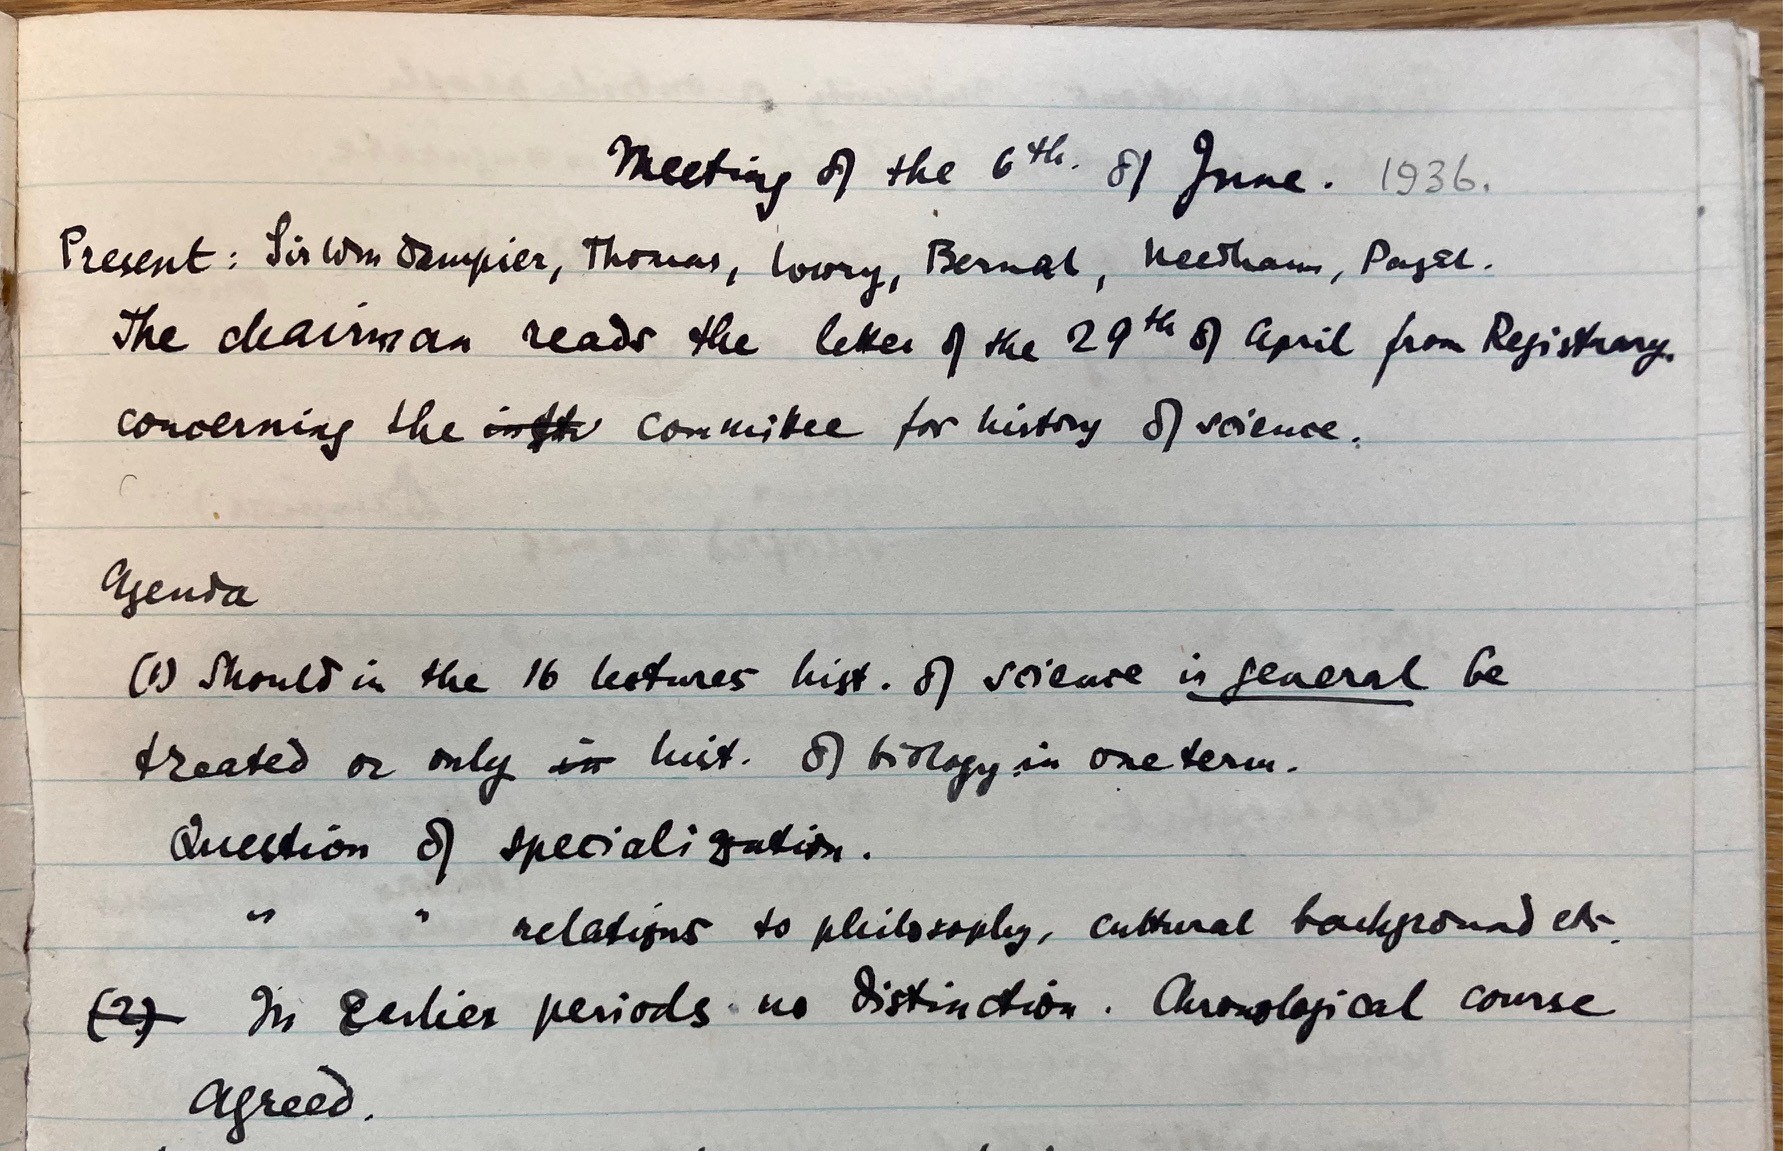 Meeting of the 6th. of June. 1936.
Present: Sir Wm Dampier, Thomas, Lowry, Bernal, Needham, Pagel.
The chairman reads the letter of the 29th of April from Registrary.
concerning the committee for history of science.
Agenda
(1) Should in the 16 lectures hist. of science in general be
treated or only in hist. of biology in one term.
Question of specialization.
" " relations to philosophy, cultural background etc.
(2) In Earlier periods no distinction. Chronological course
agreed.